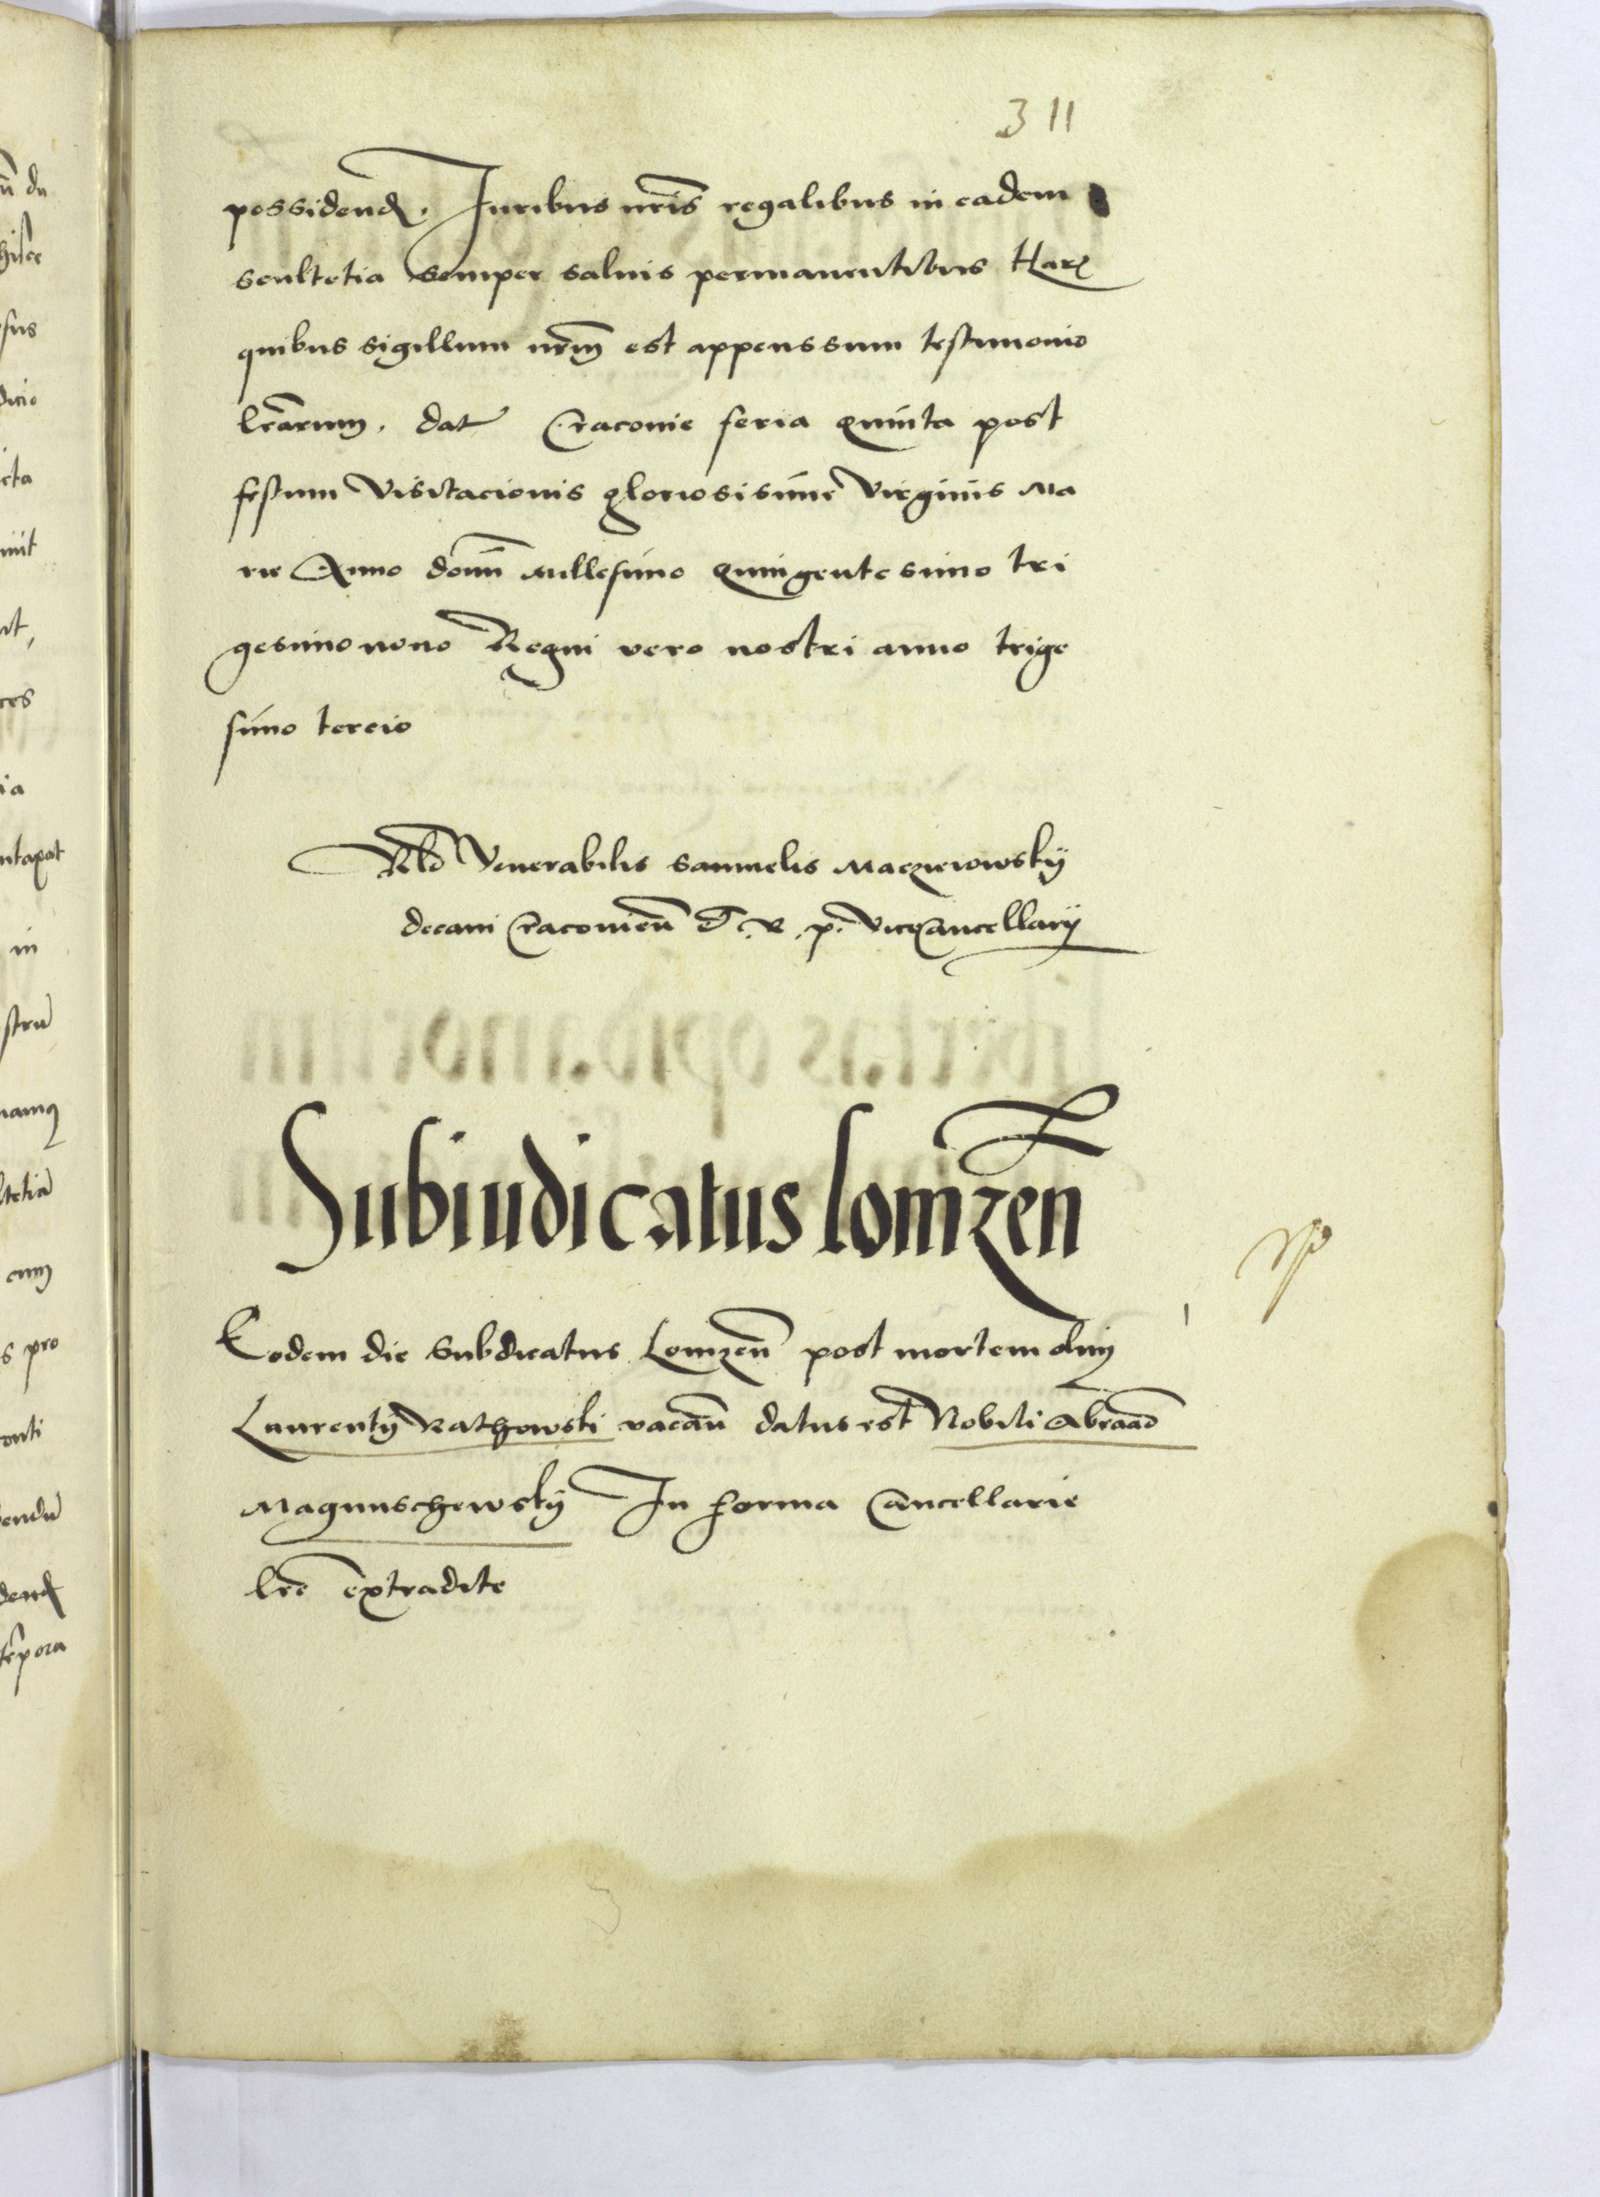 311
possidend. Juribus nris regalibus in eadem
scultetia semper salvis permanentibus Har
quibus sigillum nrm est appenssum testimonio
lrarum. dat Cracovie feria quinta post
festum Visitacionis gloriosisime Virginis Ma
rie Anno domi Millesimo quingentesimo tri
gesimo nono Regni vero nostri anno trige
simo tercio
Rlo Venerabilis Samuelis Macziejowskÿ
decani Cracovien d. R. p. Vicecancellarÿ
Subiudicatus lomzen
Eodem die Subdicatus Lomzen post mortem olim
Laurentÿ Rathowski vacan datus est Nobili Abraad
Magnuschewskÿ In forma Cancellarie
lre extradite